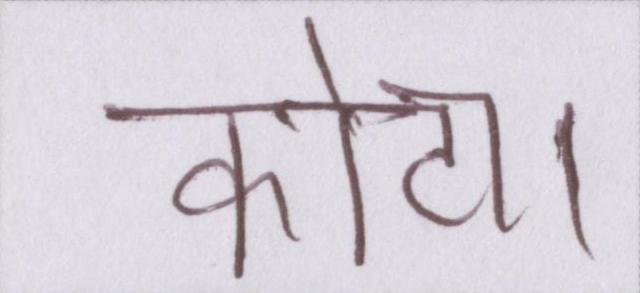 कोटा।